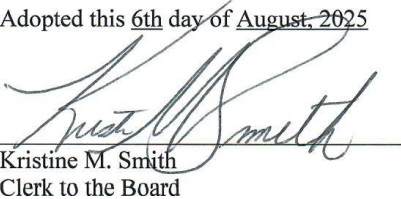 Adopted this 6th day of August, 2025
Krist M Smith
Kristine M. Smith
Clerk to the Board